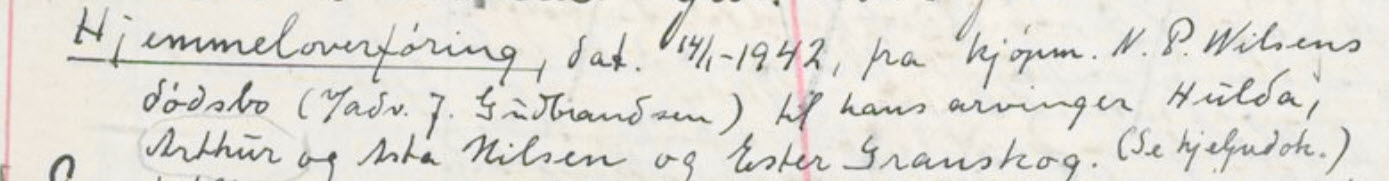 Hjemmeloverföring, dat. 14/1-1942, fra kjöpm. N. P. Nilsens
dödsbo (v/adv. J. Gudbrandsen) til hans arvinger Hulda,
Arthur og Asta Nilsen og Ester Granskog. (Se hjelpedok.)